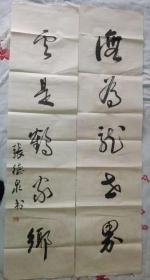 海为龙世界
云是鹤家乡
张德泉书